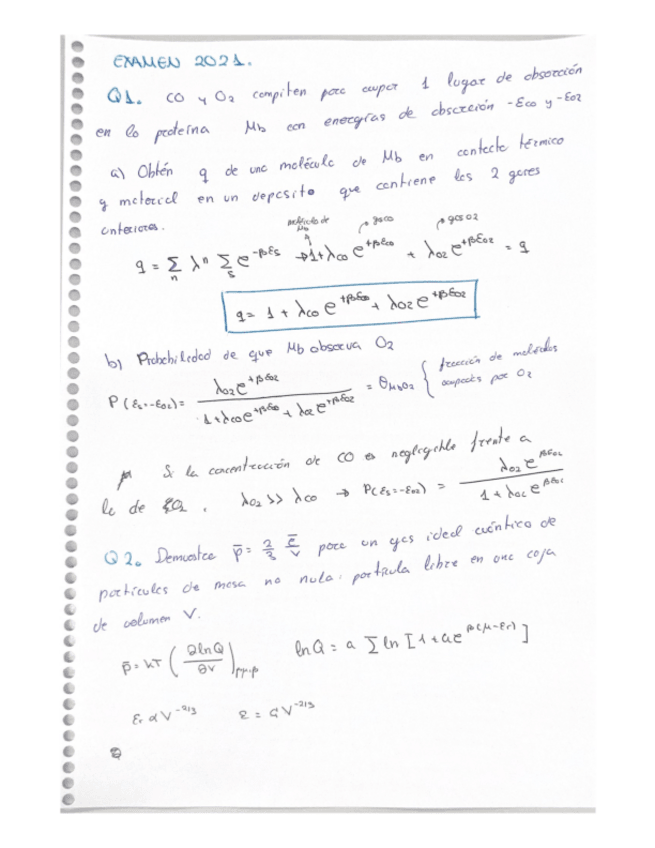 EXAMEN 2021.
Q1. CO y O2 compiten para ocupar 1 lugar de absorción
en la proteína Mb con energías de absorción -εco y -εo2
a) Obtén q de una molécula de Mb en contacto térmico
y material en un deposito que contiene los 2 gases
anteriores.
molécula de Mb → gas co → gas o2
q = Σn λ^n Σs e^-βεs → 1+λco e^+βεco + λo2 e^+βεo2 = q
q = 1 + λco e^+βεco + λo2 e^+βεo2
b) Probabilidad de que Mb absorva O2
P(εs=-εo2) = λo2 e^+βεo2 / (1+λco e^+βεco + λo2 e^+βεo2) = θMbO2 { fracción de moléculas ocupadas por O2
Si la concentración de CO es neglegible frente a
la de O2, λo2 >> λco → P(εs=-εo2) = λo2 e^βεo2 / (1+λo2 e^βεo2)
Q2. Demuestra p̄ = 2/3 Ē/V para un gas ideal cuántico de
partículas de masa no nula: partícula libre en una caja
de volumen V.
p̄ = kT (∂lnQ/∂V) lnQ = a Σ ln [1+ae^β(μ-εr)]
εr α V^-2/3 ε = GV^-2/3